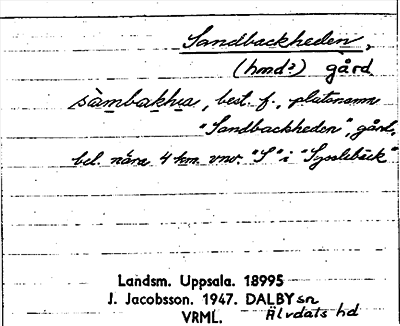 Sandbackheden,
(hmd?) gård
sàmbakhea, best. f., platsnamn
"Sandbackheden", gård,
bel. nära 4 km. vnv. "S" i "Sysslebäck"
Landsm. Uppsala. 18995
J. Jacobsson. 1947. DALBY sn
VRML. Älvdals hd